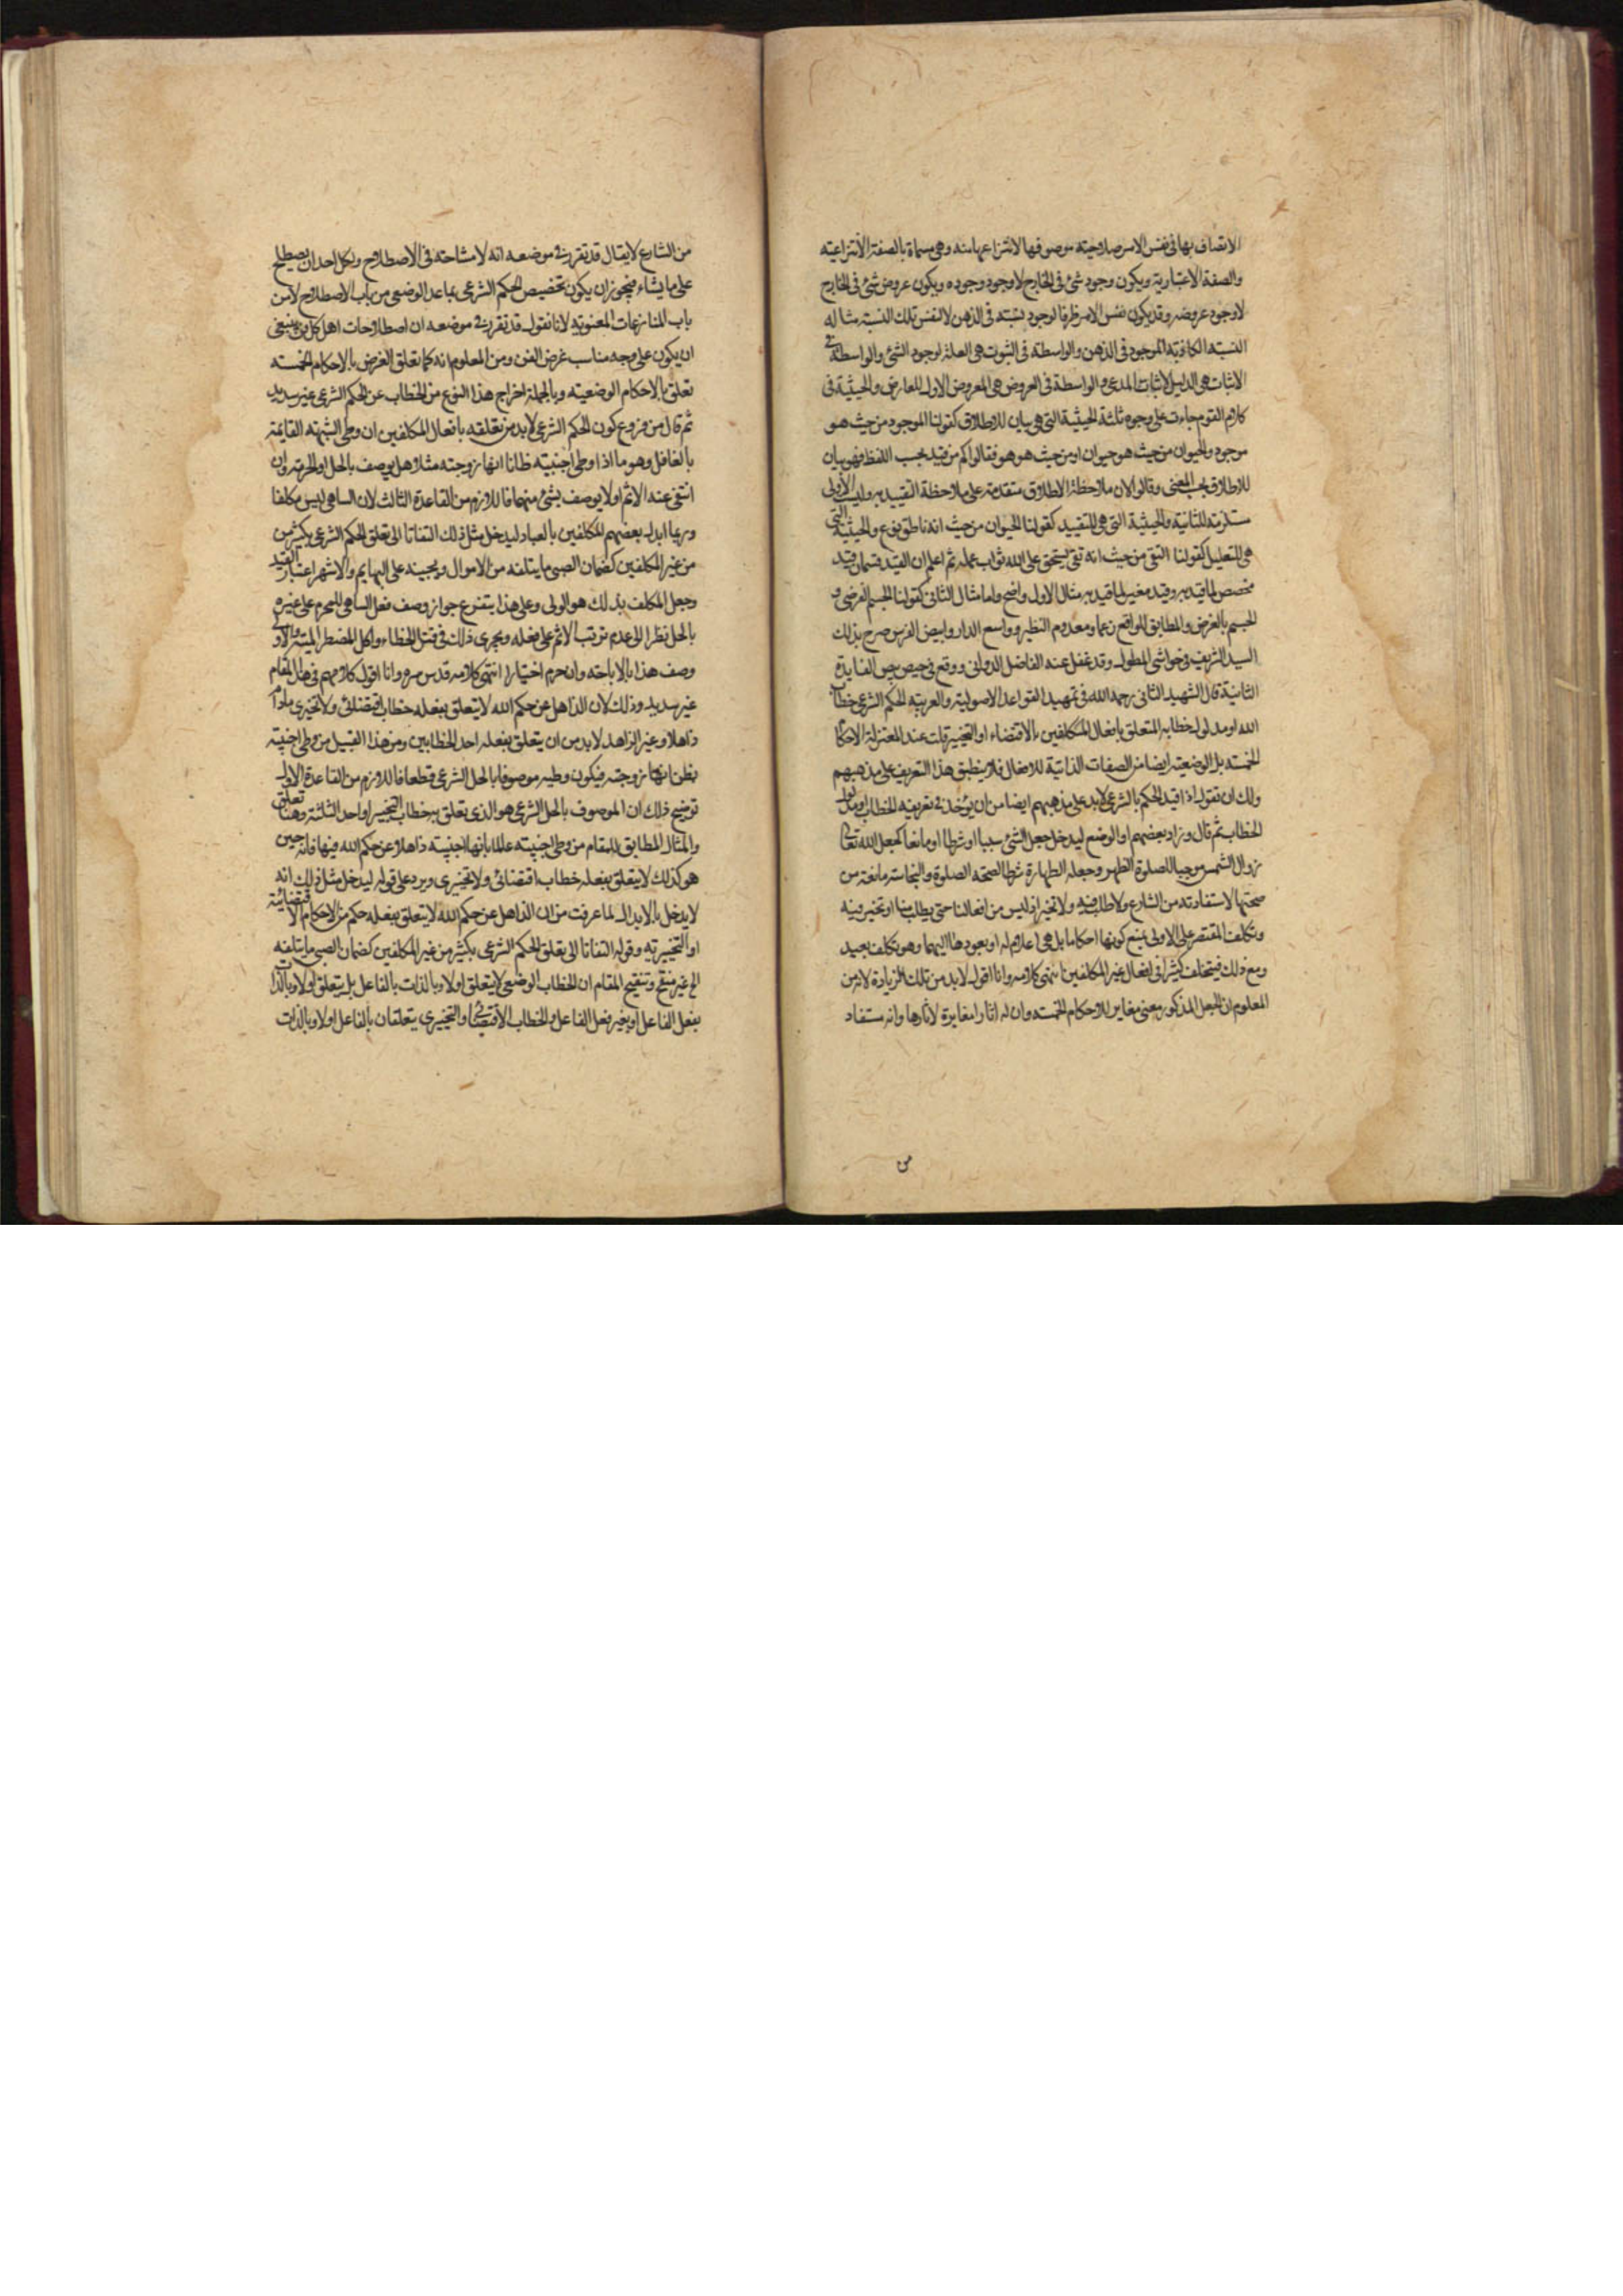 الاتصاف بها في نفس الامر صلاحيته موصوفها لانتزاعها منه وهي مسماة بالصفة الانتزاعية
والصفة الاعتبارية ويكون وجود شئ في الخارج لا وجود وجوده ويكون عروض شئ في الخارج
لا وجود عروضه وقد يكون نفس الامر ظرفا لوجود نسبته في الذهن لا لنفس تلك النسبة مثاله
النسبة الكاذبة الموجود في الذهن والواسطة في الثبوت هي العلة لوجود الشئ والواسطة في
الاثبات هي الدليل لاثبات المدعى والواسطة في العروض هي المعروض الاول للعارض والحيثية في
كلام القوم جاءت على وجوه ثلثة الحيثية التي هي بيان للاطلاق كقولنا الموجود من حيث هو
موجود والحيوان من حيث هو حيوان او من حيث هو هو فقالوا كم من قيد بحسب اللفظ فهو بيان
للاطلاق بحسب المعنى وقالوا لان ملاحظة الاطلاق متقدمة على ملاحظة التقييد به وليست الاولى
مستلزمة للثانية والحيثية التي هي للتقييد كقولنا الحيوان من حيث انه ناطق نوع والحيثية التي
هي للتعليل كقولنا التقي من حيث انه تقي يستحق على الله ثواب عمله ثم اعلم ان القيد قسمان قيد
مخصص لما قيد به وقيد مغير لما قيد به مثال الاول واضح واما مثال الثاني كقولنا الجسم الفرضي و
الجسم بالفرض والمطابق للواقع زعما ومعدوم النظير وواسع الدار وابيض الفرس صرح بذلك
السيد الشريف في حواشي المطول وقد غفل عنه الفاضل الدواني ووقع في حيص بيص الفايدة
الثانية قال الشهيد الثاني رحمه الله في تمهيد القواعد الاصولية والعربية الحكم الشرعي خطاب
الله او مدلول خطابه المتعلق بافعال المكلفين بالاقتضاء او التخيير قلت عند المعتزلة الاحكام
الخمسة بل الوضعية ايضا من الصفات الذاتية للافعال فلا ينطبق هذا التعريف على مذهبهم
ولك ان تقول اذا قيد الحكم بالشرعي لا بد على مذهبهم ايضا من ان يؤخذ في تعريفه الخطاب او مدلول
الخطاب ثم قال وزاد بعضهم او الوضع ليدخل جعل الشئ سببا او شرطا او مانعا كجعل الله تعالى
زوال الشمس موجبا لصلوة الظهر وجعله الطهارة شرطا لصحة الصلوة والنجاسة مانعة من
صحتها لاستفادته من الشارع ولا طلب فيه ولا تخيير اذ ليس من افعالنا حتى يطلب منا او نخير فيه
وتكلف المقتصر على الاولى بمنع كونها احكاما بل هي اعلام له او بعودها اليهما وهو تكلف بعيد
ومع ذلك فيتخلف كثيرا في افعال غير المكلفين انتهى كلامه وانا اقول لا بد من تلك الزيادة لانه من
المعلوم ان الجعل المذكور معنى مغاير للاحكام الخمسة وان له اثارا مغايرة لاثارها وانه مستفاد
من
من الشارع لا يقال قد تقرر في موضعه انه لا مشاحة في الاصطلاح ولكل احد ان يصطلح
على ما يشاء فيجوز ان يكون تخصيص الحكم الشرعي بما عدا الوضعي من باب الاصطلاح لا من
باب المنازعات المعنوية لانا نقول قد تقرر في موضعه ان اصطلاحات اهل كل فن ينبغي
ان يكون على وجه مناسب غرض الفن ومن المعلوم انه كما تعلق الغرض بالاحكام الخمسة
تعلق بالاحكام الوضعية وبالجملة اخراج هذا النوع من الخطاب عن الحكم الشرعي غير سديد
ثم قال من فروع كون الحكم الشرعي لا بد من تعلقه بافعال المكلفين ان وطي الشبهة القايمة
بالغافل وهو ما اذا وطي اجنبية ظانا انها زوجته مثلا هل يوصف بالحل او الحرمة وان
انتفى عنه الاثم او لا يوصف بشئ منهما فاللازم من القاعدة الثالث لان الساهي ليس مكلفا
وربما ابدل بعضهم المكلفين بالعباد ليدخل مثل ذلك التفاتا الى تعلق الحكم الشرعي بكثير من
من غير المكلفين كضمان الصبي ما يتلفه من الاموال ويجنيه على البهايم والاشهر اعتبار القيد
وجعل المكلف بذلك هو الولي وعلى هذا يتفرع جواز وصف فعل الساهي للمحرم على غيره
بالحل نظرا الى عدم ترتب الاثم على فعله ويجري ذلك في قتل الخطاء واكل المضطر الميتة والاولى
وصف هذا بالاباحة وان حرم اختيارا انتهى كلامه قدس سره وانا اقول كلامهم في هذا المقام
غير سديد وذلك لان الذاهل عن حكم الله لا يتعلق بفعله خطاب اقتضائي ولا تخييري ما دام
ذاهلا وغير الذاهل لا بد من ان يتعلق بفعله احد الخطابين ومن هذا القبيل من وطي اجنبية
بظن انها زوجته فيكون وطيه موصوفا بالحل الشرعي قطعا فاللازم من القاعدة الاول
توضيح ذلك ان الموصوف بالحل الشرعي هو الذي تعلق به خطاب التخيير او احد الثلثة وهنا تعلق
والمثال المطابق للمقام من وطي اجنبية عالما بانها اجنبية ذاهلا عن حكم الله فيها فانه حين
هو كذلك لا يتعلق بفعله خطاب اقتضائي ولا تخييري ويرد على قوله ليدخل مثل ذلك انه
لا يدخل بالابدال لما عرفت من ان الذاهل عن حكم الله لا يتعلق بفعله حكم من الاحكام الاقتضائية
او التخييرية وقوله التفاتا الى تعلق الحكم الشرعي بكثير من غير المكلفين كضمان الصبي ما يتلفه
الخ غير منقح وتنقيح المقام ان الخطاب الوضعي لا يتعلق اولا وبالذات بالفاعل بل يتعلق اولا وبالذات
بفعل الفاعل او بغير فعل الفاعل والخطاب الاقتضائي او التخييري يتعلقان بالفاعل اولا وبالذات